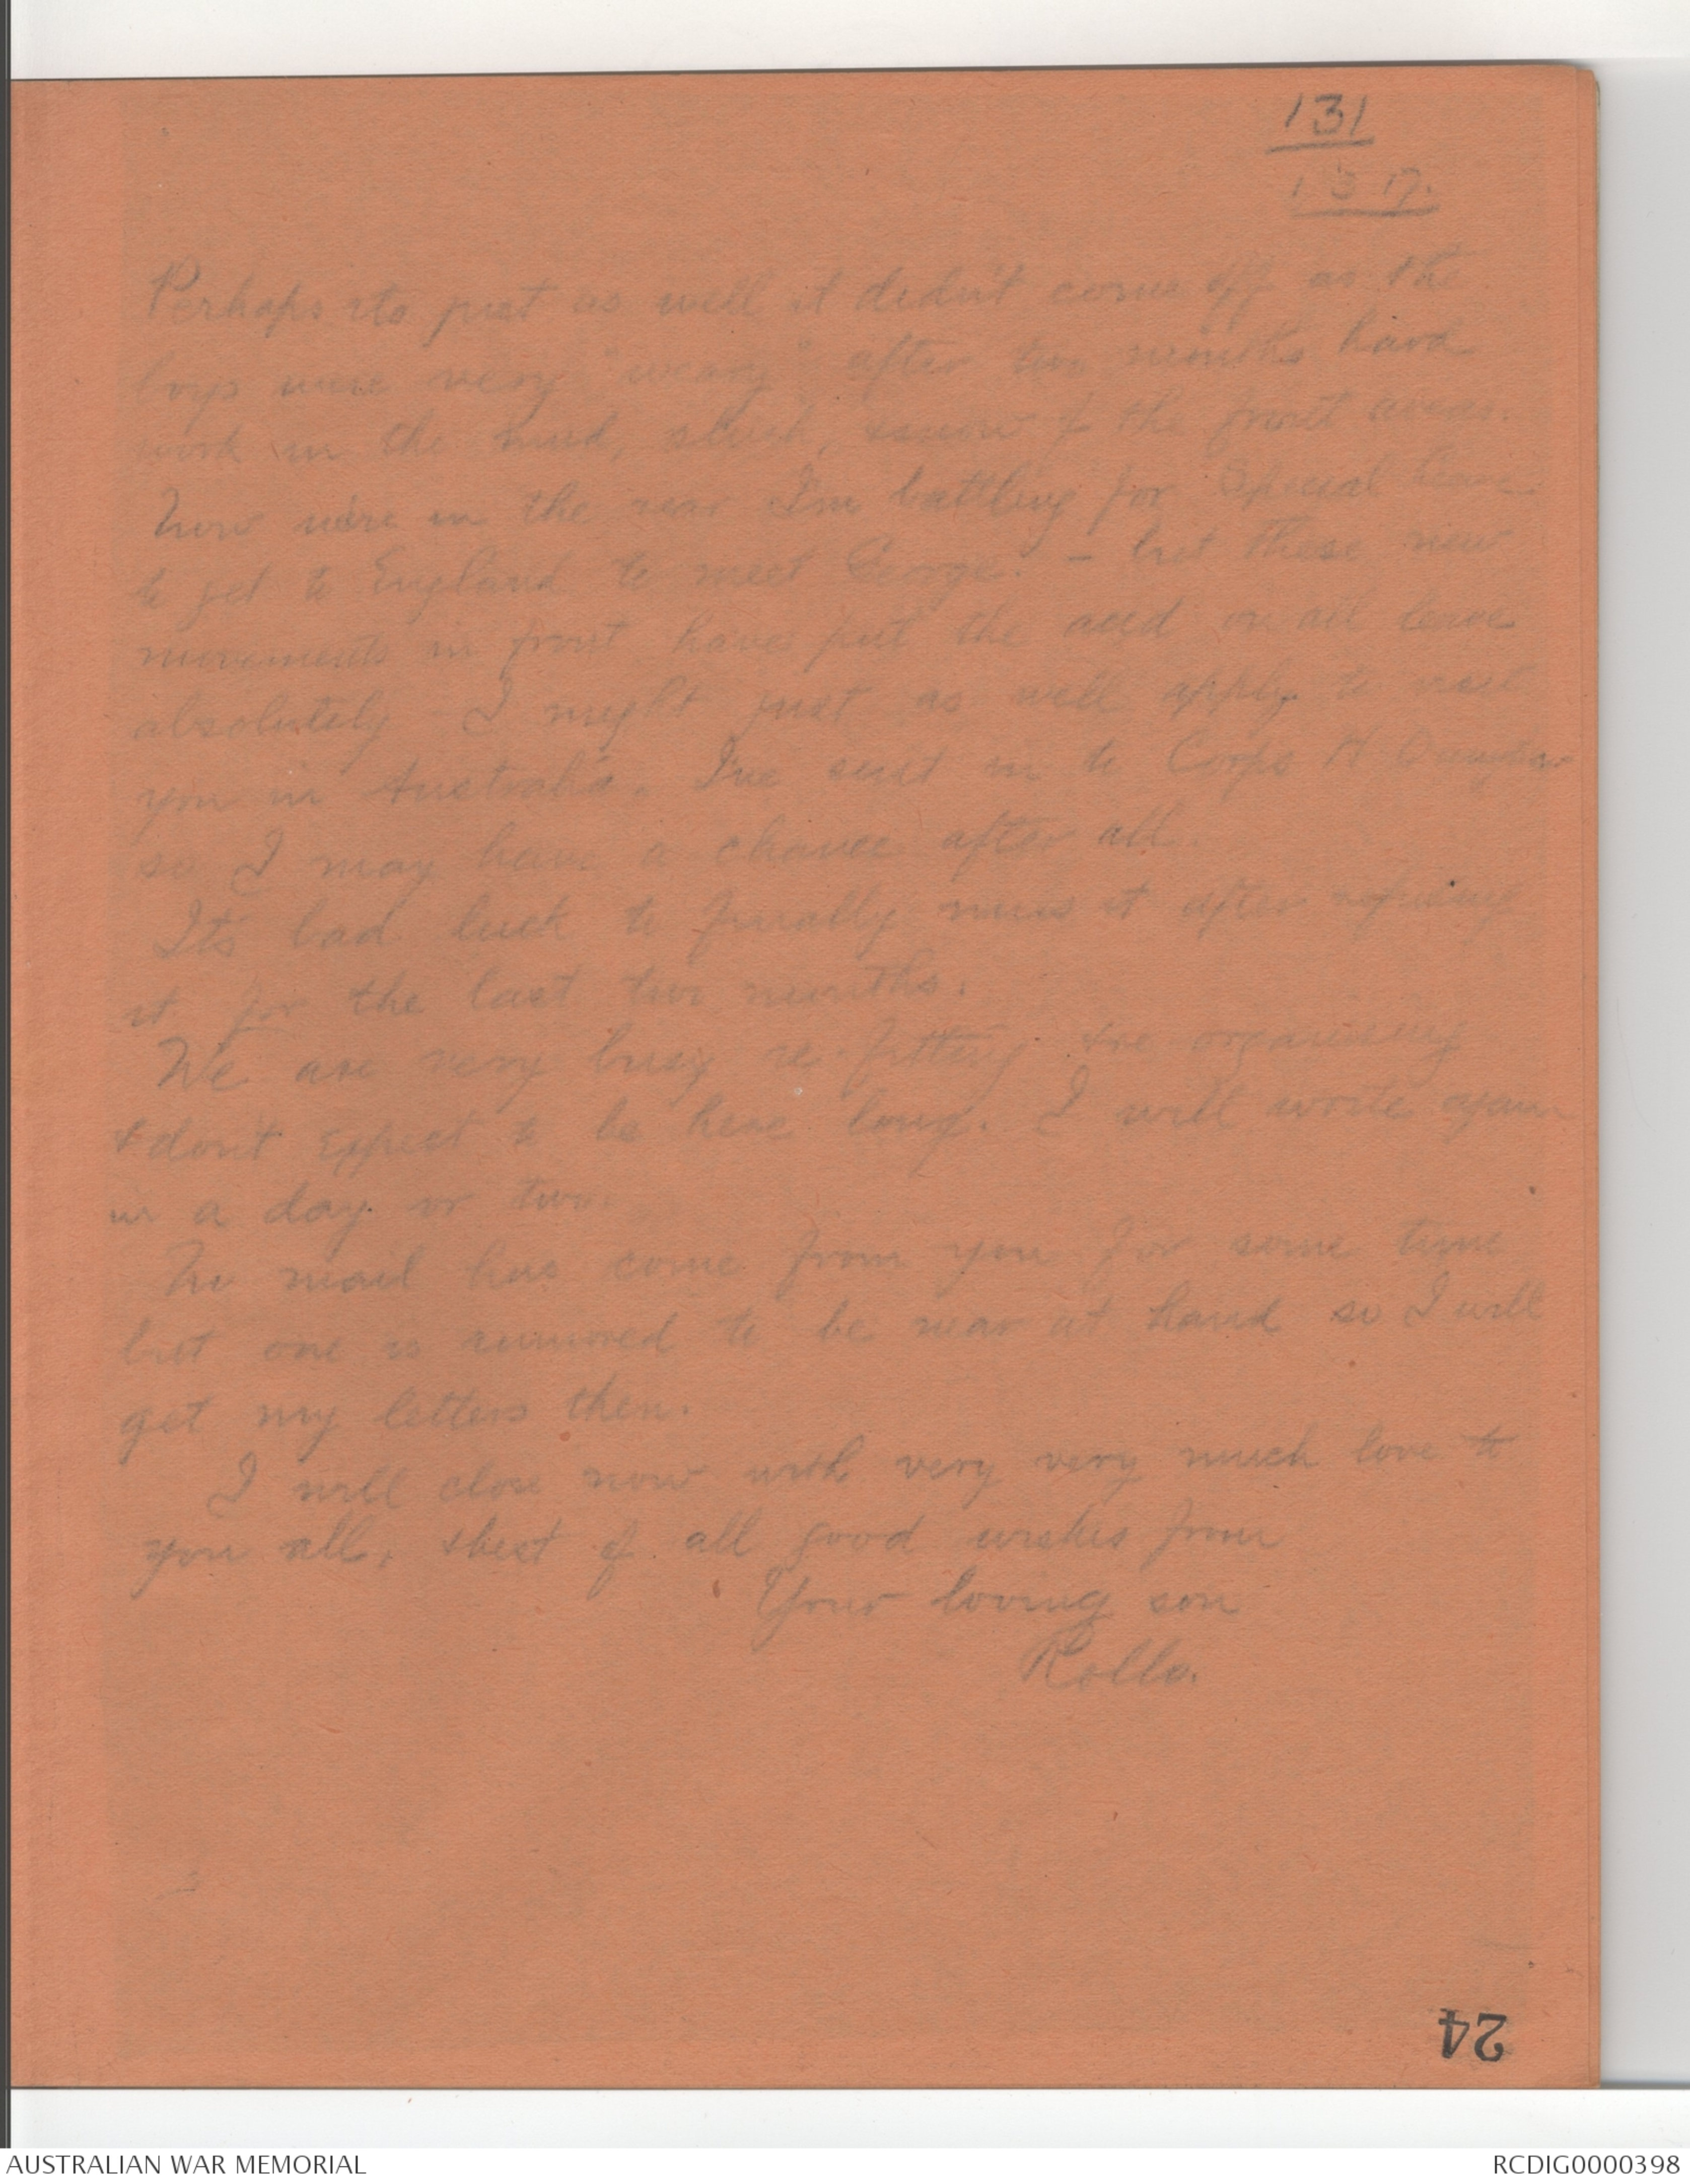 131
Perhaps its just as well it didn't come off as the
boys were very "weary" after two months hard
work in the mud, slush, & snow of the front areas.
Now we're in the rear I'm battling for special leave
to get to England to meet George. - but these new
movements in front have put the acid on all leave
absolutely - I might just as well apply to visit
you in Australia. I've sent in to Corps H
so I may have a chance after all.
Its bad luck to finally miss it after refusing
it for the last two months.
We are very busy re-fitting & re organising
& don't expect to be here long. I will write again
in a day or two.
No mail has come from you for some time
but one is rumored to be near at hand so I will
get my letters then.
I will close now with very very much love to
you all, & best of all good wishes from
Your loving son
Rollo.
24
AUSTRALIAN WAR MEMORIAL
RCDIG0000398